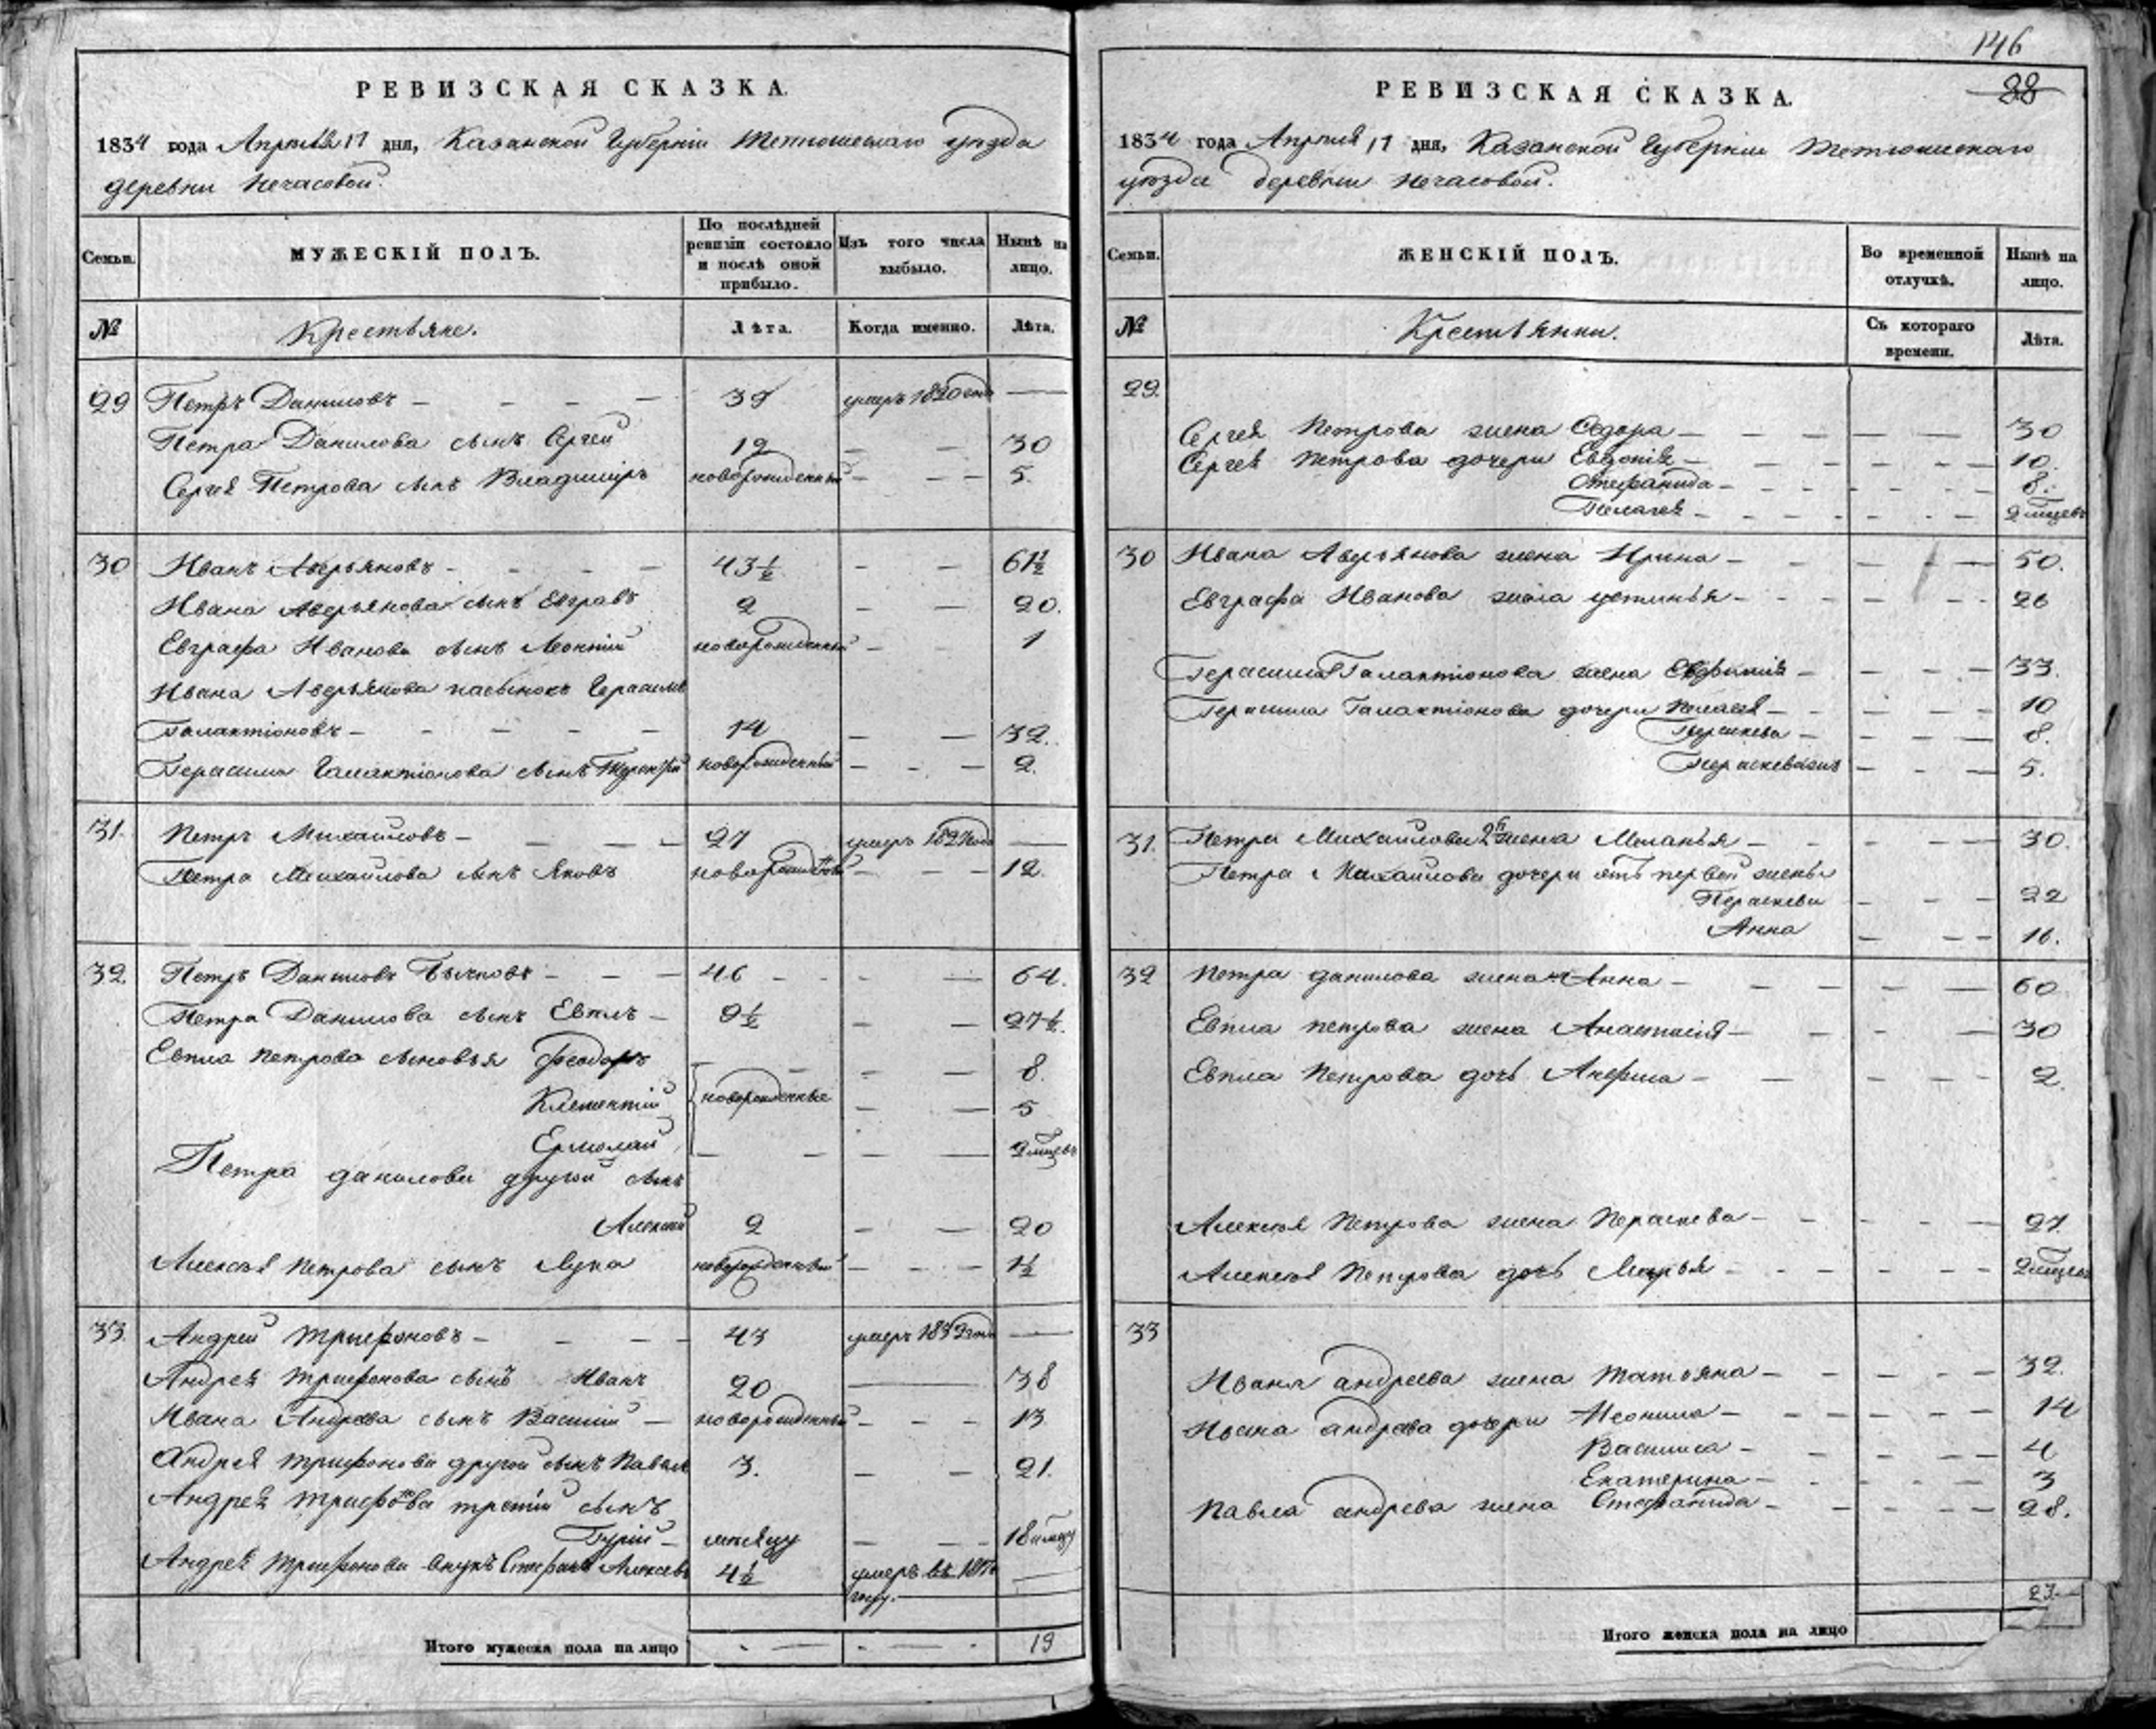 РЕВИЗСКАЯ СКАЗКА.
1834 года Апреля 17 дня, Казанской Губерніи Тетюшскаго уѣзда
деревни Нечасовой.
Семьи.
МУЖЕСКІЙ ПОЛЪ.
По послѣдней ревизіи состояло и послѣ оной прибыло.
Изъ того числа выбыло.
Нынѣ на лицо.
№
Крестьяне.
Лѣта.
Когда именно.
Лѣта.
29 Петръ Даниловъ — 39 умеръ 1820 года —
Петра Данилова сынъ Сергей 12 — 30
Сергея Петрова сынъ Владимиръ новорожденный — 5.
30 Иванъ Аверьяновъ — 43½ — 61½
Ивана Аверьянова сынъ Евграфъ 2 — 20.
Евграфа Иванова сынъ Леонтій новорожденный — 1
Ивана Аверьянова пасынокъ Герасимъ
Галактіоновъ — 14 — 32.
Герасима Галактіонова сынъ новорожденный — 2.
31. Петръ Михайловъ — 27 умеръ года —
Петра Михайлова сынъ Яковъ новорожденный — 12.
32. Петръ Даниловъ Бычковъ — 46 — 64.
Петра Данилова сынъ Евплъ — 9½ — 27½.
Евпла Петрова сыновья Феодоръ — 8.
Клементій новорожденные — 5
Ермолай — 2 мѣсцовъ
Петра данилова другой сынъ
Алексей 2 — 20
Алексѣя Петрова сынъ Лука новорожденный — 1½
33. Андрей Трифоновъ — 43 умеръ 1832 года —
Андрея Трифонова сынъ Иванъ 20 — 38
Ивана Андреева сынъ Василій — новорожденный — 13
Андрея Трифонова другой сынъ Павелъ 3. — 21.
Андрея Трифонова третій сынъ
Гурій — мѣсяцу — 18
Андрея Трифонова внукъ Стефанъ Алексеевъ 4½ умеръ въ
году. —
Итого мужеска пола на лицо — 19
146
88
РЕВИЗСКАЯ СКАЗКА.
1834 года Апреля 17 дня, Казанской Губерніи Тетюшскаго
уѣзда деревни Нечасовой.
Семьи.
ЖЕНСКІЙ ПОЛЪ.
Во временной отлучкѣ.
Нынѣ на лицо.
№
Крестьянки.
Съ котораго времени.
Лѣта.
29.
Сергея Петрова жена Федора — 30
Сергея Петрова дочери Евдокія — 10.
Стефанида — 8.
Пелагея — 2 мѣсцовъ
30 Ивана Аверьянова жена Ирина — 50.
Евграфа Иванова жена устинья — 26
Герасима Галактіонова жена Евфимія — 33.
Герасима Галактіонова дочери Пелагея — 10
Параскева — 8.
5.
31. Петра Михайлова 2й жена Меланья — 30.
Петра Михайлова дочери отъ первой жены
Параскева — 22
Анна — 16.
32 Петра данилова жена Анна — 60
Евпла петрова жена Анастасія — 30
Евпла Петрова дочь Анфиса — 2.
Алексея Петрова жена Параскева — 27.
Алексея Петрова дочь Марья — 2 мѣсцовъ
33
Ивана андреева жена Татьяна — 32.
Ивана андреева дочери Неонила — 14
Василиса — 4
Екатерина — 3
Павла андреева жена Стефанида — 28.
23.
Итого женска пола на лицо